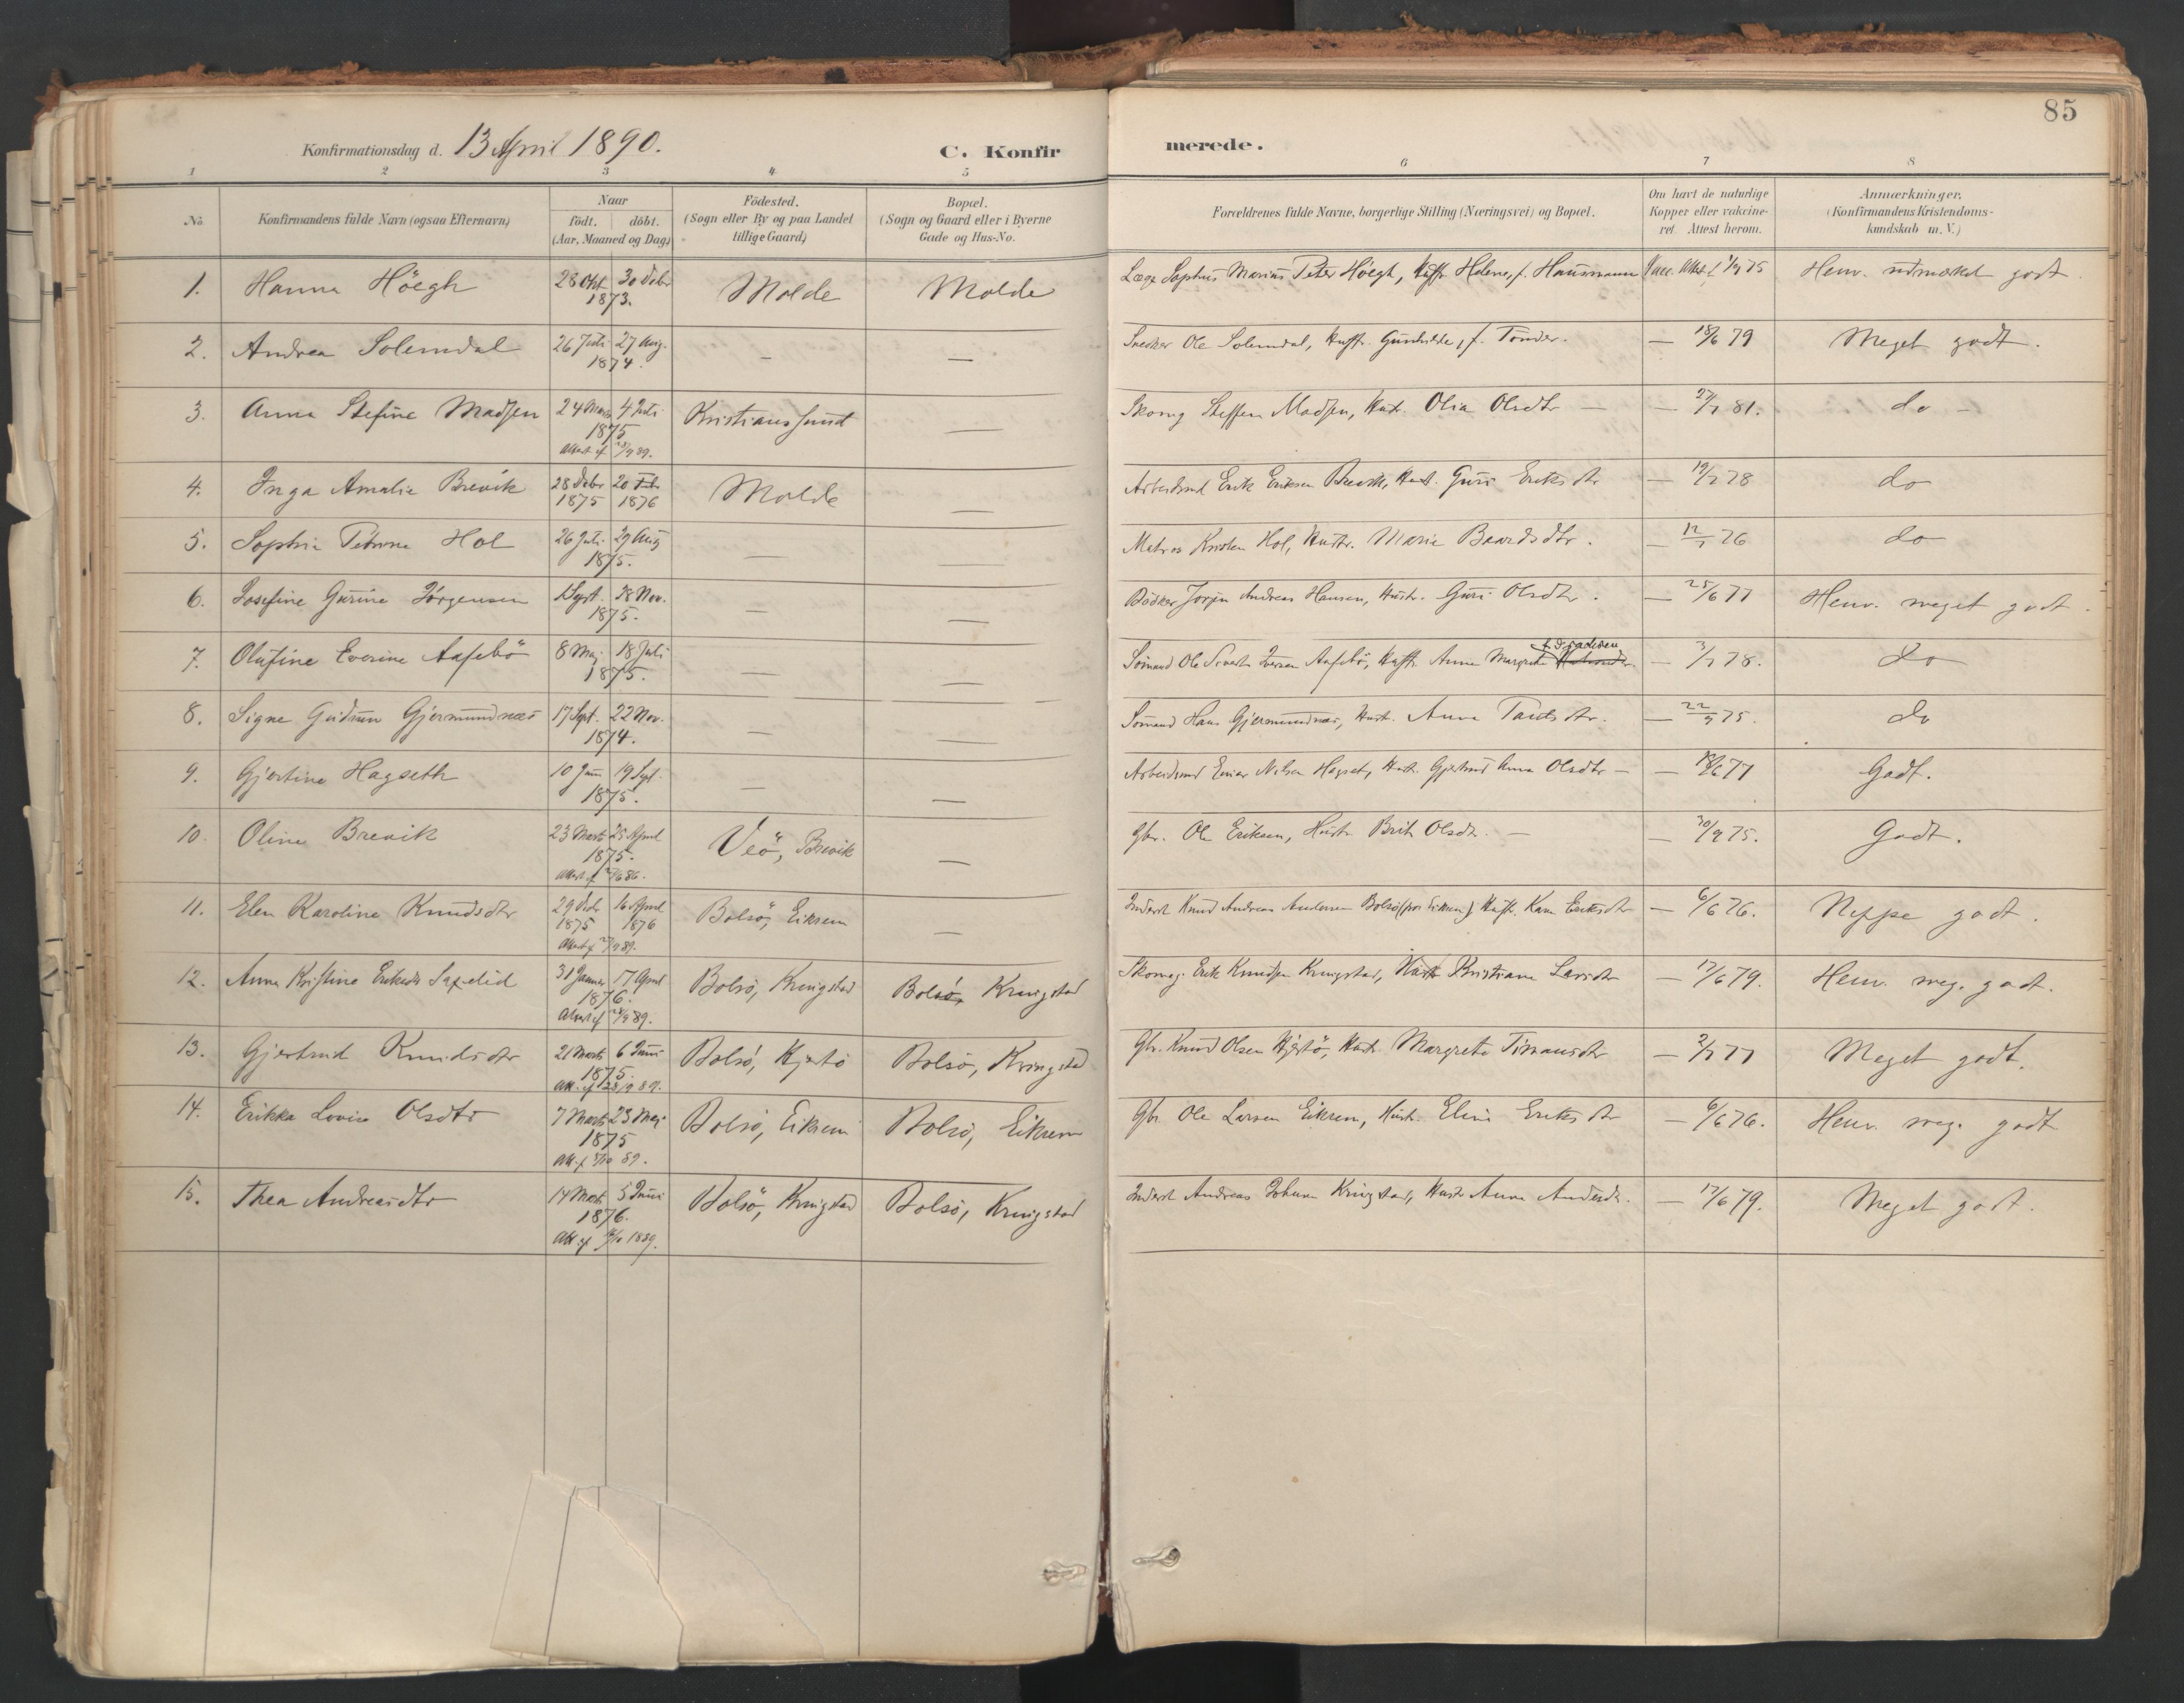 85
Konfirmationsdag d. 13 April 1890. C. Konfirmerede.
1 2 3 4 5 6 7 8
No. Konfirmandens fulde Navn (ogsaa Efternavn) Naar födt. döbt. (Aar, Maaned og Dag) Födested. (Sogn eller By og paa Landet tillige Gaard) Bopæl. (Sogn og Gaard eller i Byerne Gade og Hus-No. Forældrenes fulde Navne, borgerlige Stilling (Næringsvei) og Bopæl. Om havt de naturlige Kopper eller vakcineret. Attest herom. Anmærkninger. (Konfirmandens Kristendomskundskab m. V.)
1. Hanna Höegh 28 Okt. 30 Debr 1873. Molde Molde Læge Sophus Marius Peter Höegh, Hustr. Helene, f. Hausmann Vacc. Attest f. 1/9 75 Henv. udmærket godt
2. Andrea Solemdal 26 Juli 27 Aug. 1874. — — Snedker Ole Solemdal, Hustr. Gunhilde, f. Tönder. — 18/6 79 Meget godt.
3. Anna Stefine Madsen 24 Marts 4 Juli 1875 Attest af 28/9 89. Kristianssund — Skomg Steffen Madsen, Hustr. Olia Olsdtr — — 27/7 81. do —
4. Inga Amalie Brevik 28 Debr 1875 20 Feb 1876 Molde — Arbeidsmd Erik Eriksen Brevik, Hust. Guri Eriksdtr — 19/7 78 do
5. Sophie Petrine Hol 26 Juli 29 Aug 1875. — — Matros Kristen Hol, Hustr. Marie Baardsdtr. — 12/7 76 do
6. Josefine Gurine Jörgensen 1 Sept. 28 Nov. 1875. — — Bödker Jörgen Andreas Hansen, Hustr. Guri Olsdtr. — 25/6 77 Henv. meget godt.
7. Olufine Everine Aafebö 8 Maj 18 Juli 1875. — — Sömand Ole Sivert Iversen Aafebö, Hustr. Anne Margrete — 3/7 78. do
8. Signe Gudrun Gjermundnæs 17 Sept. 22 Nov. 1874. — — Sömand Hans Gjermundnæs, Hustr. Anna — 22/9 75. do
9. Gjertine Hagseth 10 Juni 19 Sept. 1875. — — Arbeidsmd Einar Nilsen Hagset, Hustr. Gjertrud Anna Olsdtr — — 18/6 77 Godt.
10. Oline Brevik 23 Marts 25 April 1875. Attest af Veö, Brevik — Gbr. Ole Eriksen, Hustr. Brit Olsdtr. — — 30/9 75. Godt.
11. Elen Karoline Knudsdtr 29 Debr 1875 16 April 1876 Attest af 27/9 89. Bolsö, Eikrem — Inderst Knud Andreas Andersen Bolsö (paa Eikrem), Hustr. Karen Eriksdtr — 6/6 76. Neppe godt.
12. Anna Kristine Eriksdtr 31 Januar 17 April 1876. Attest af 28/9 89. Bolsö, Kringstad Bolsö, Kringstad Skomag. Erik Knudsen Kringstad, Hustr. Kristiane Larsdtr — 17/6 79. Henv. meg. godt.
13. Gjertrud Knudsdtr 21 Marts 6 Juni 1875. Att. af 28/9 89. Bolsö, Hjertö Bolsö, Kringstad Gbr. Knud Olsen Hjertö, Hustr. Margrete Timansdtr — 2/7 77 Meget godt.
14. Erikka Lovise Olsdtr 7 Marts 23 Maj 1875 Att. af 89. Bolsö, Eikrem Bolsö, Eikrem Gbr. Ole Larsen Eikrem, Hustr. Eline Eriksdtr — 6/6 76. Henv. meg. godt
15. Thea Andreasdtr 14 Marts 5 Juni 1876. Att. af 1889. Bolsö, Kringstad Bolsö, Kringstad Inderst Andreas Johnsen Kringstad, Hustr. Anne Andersdtr. — 17/6 79. Meget godt.